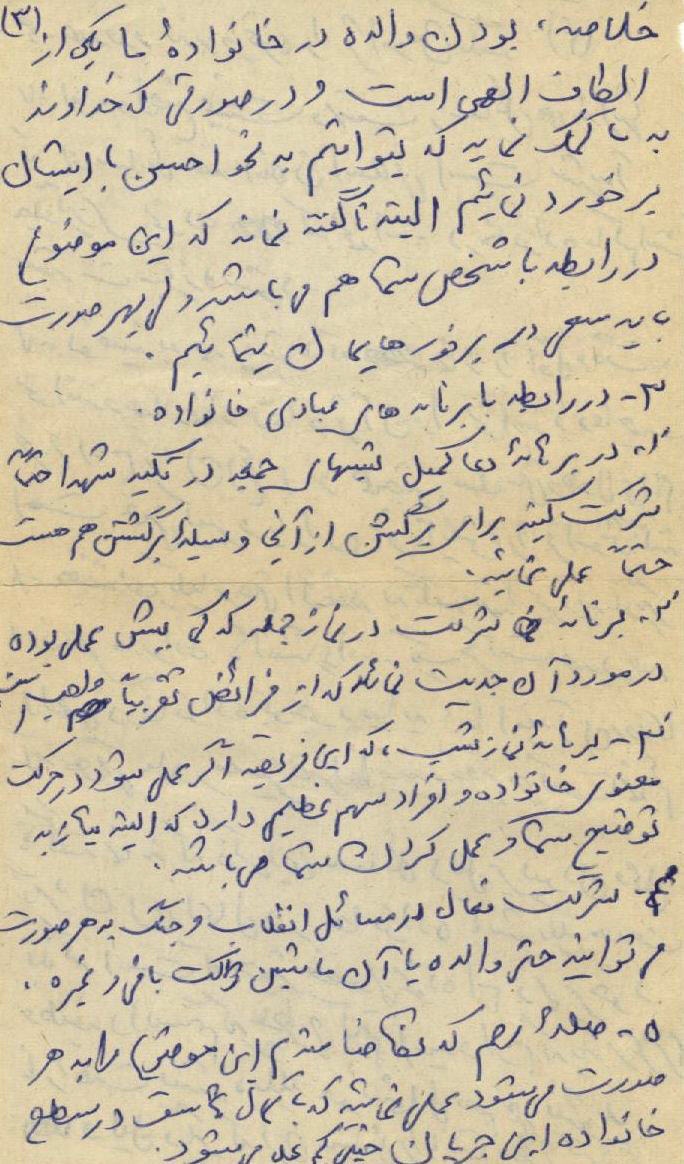 (۳)
خلاصه، بودن والده در خانوادهٔ ما یکی از
الطاف الهی است و در صورتی که خداوند
به ما کمک نماید که بتوانیم به نحو احسن با ایشان
برخورد نمائیم البته ناگفته نماند که این موضوع
در رابطه با شخص شما هم می باشد ولی بهر صورت
باید سعی در برخوردهایمان بنمائیم.
۳- در رابطه با برنامه های عبادی خانواده.
۱- در برنامهٔ دعا کمیل شبهای جمعه در تکیه شهدا حتماً
شرکت کنید برای برگشتن از آنجا وسیلهٔ برگشتن هم هست
حتماً عمل نمائید.
۲- برنامهٔ شرکت در نماز جمعه که کم بیش عملی بوده
در مورد آن جدیت نمائید که از فرائض تقریباً واجب است
۳- برنامهٔ نماز شب، که این فریضه اگر عمل شود در حرکت
معنوی خانواده و افراد سهم عظیمی دارد که البته نیاز به
توضیح شما و عمل کردن شما می باشد.
۴- شرکت فعال در مسائل انقلاب و جنگ به هر صورت
می توانید حتی والده با آن ماشین ژاکت بافی و غیره.
۵- صلهٔ رحم که تقاضا مندم این موضوع را به هر
صورت می شود عملی نمائید که با کمال تأسف در سطح
خانواده این جریان خیلی کم عمل می شود.